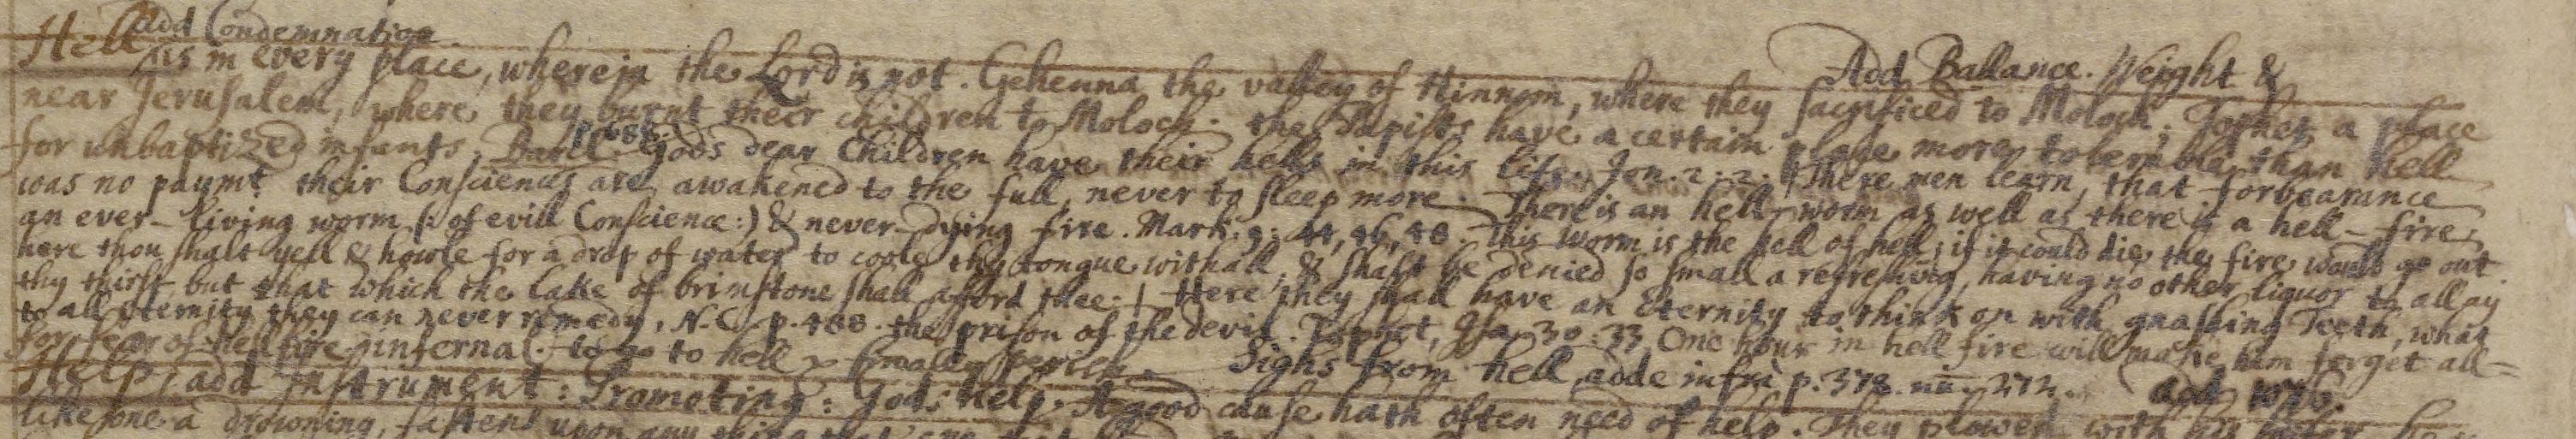 add Condemnation.
Add Ballance. Weight &
Hell is in every place, wherein the Lord is not. Gehenna the valley of Hinnom, where they sacrificed to Moloch; Tophet a place
near Jerusalem, where they burnt their children to Moloch. the Papists have a certain place more tolerable than hell
p. 688.
for unbaptized infants, Gods dear Children have their hells in this life. Jon. 2. 2. There men learn, that forbearance
was no paymt. their Consciences are awakened to the full, never to sleep more. There is an hell-worm as well as there is a hell-fire
an ever-living worm (: of evill Conscience :) & never-dying fire. Mark. 9: 44, 46, 48. This worm is the hell of hell; if it could die, the fire would go out.
here thou shalt yell & howle for a drop of water to coole thy tongue withall, & shalt be denied so small a refreshing, having no other liquor to allay
thy thirst but that which the lake of brimstone shall afford thee. Here they shall have an Eternity to think on with gnashing Teeth, what
to all eternity they can never remedy, N.C. p. 488. the prison of the devil. Tophet, Isa. 30. 33. One hour in hell fire will make him forget all
for fear of hell fire infernal. to go to hell Sighs from hell, adde infra p. 378. nu. 272. add
Help, add Instrument: Promoting: Gods help. A good cause hath often need of help. They plowed with
like one a drowning, fastens upon any thing